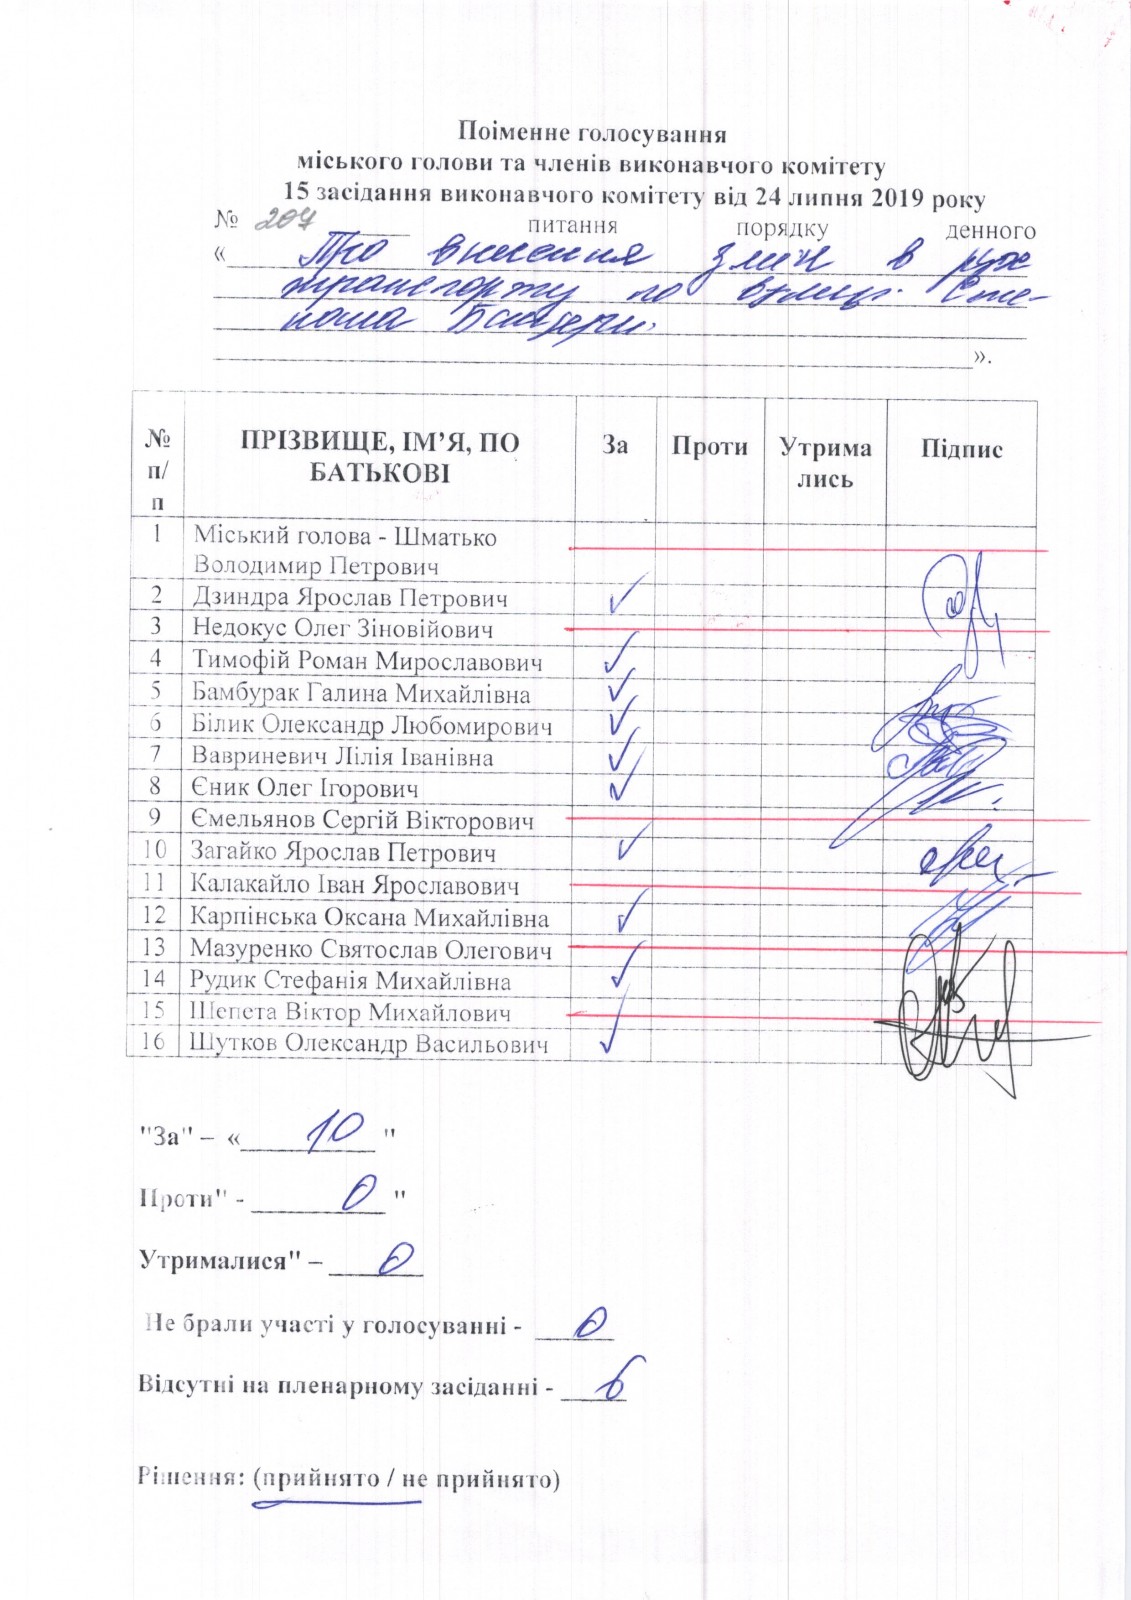 Поіменне голосування
міського голови та членів виконавчого комітету
15 засідання виконавчого комітету від 24 липня 2019 року
№ 207 питання порядку денного
« Про внесення змін в рух
транспорту по вулиці Сте-
пана Бандери.
».
№ п/п ПРІЗВИЩЕ, ІМ’Я, ПО БАТЬКОВІ За Проти Утрима лись Підпис
1 Міський голова - Шматько
Володимир Петрович
2 Дзиндра Ярослав Петрович
3 Недокус Олег Зіновійович
4 Тимофій Роман Мирославович
5 Бамбурак Галина Михайлівна
6 Білик Олександр Любомирович
7 Вавриневич Лілія Іванівна
8 Єник Олег Ігорович
9 Ємельянов Сергій Вікторович
10 Загайко Ярослав Петрович
11 Калакайло Іван Ярославович
12 Карпінська Оксана Михайлівна
13 Мазуренко Святослав Олегович
14 Рудик Стефанія Михайлівна
15 Шепета Віктор Михайлович
16 Шутков Олександр Васильович
"За" – « 10 "
Проти" - 0 "
Утрималися" – 0
Не брали участі у голосуванні - 0
Відсутні на пленарному засіданні - 6
Рішення: (прийнято / не прийнято)